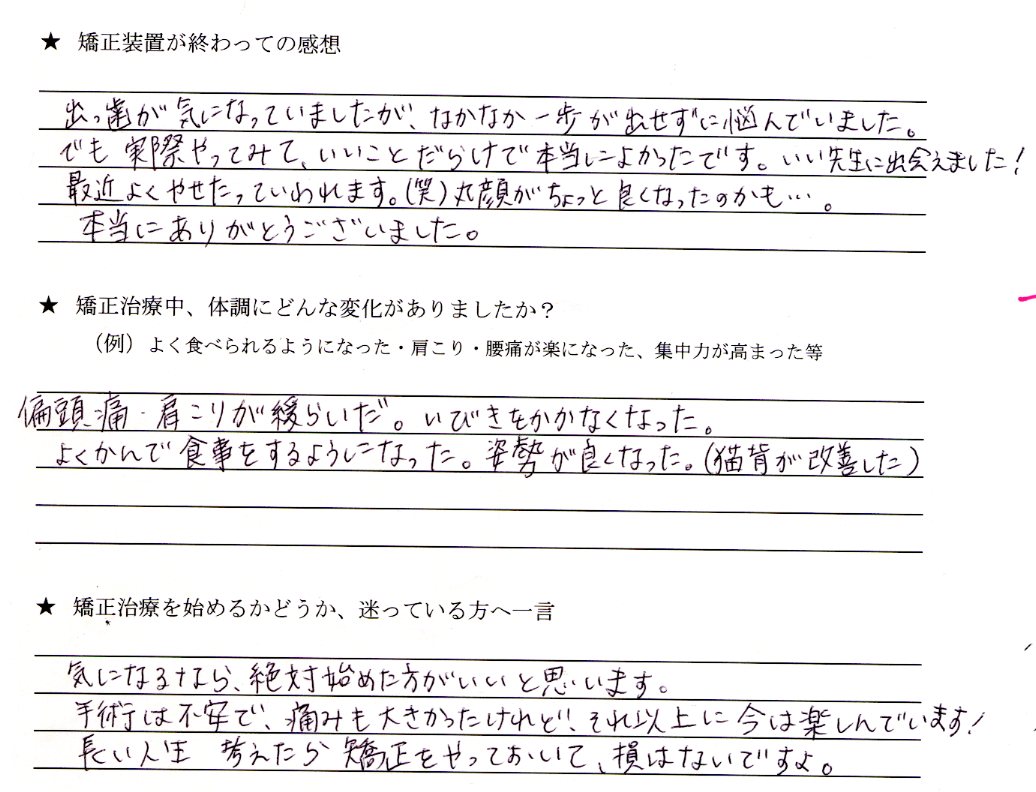 ★ 矯正装置が終わっての感想
出っ歯が気になっていましたが、なかなか一歩が出せずに悩んでいました。
でも実際やってみて、いいことだらけで本当によかったです。いい先生に出会えました!
最近よくやせたっていわれます。(笑)丸顔がちょっと良くなったのかも…。
本当にありがとうございました。
★ 矯正治療中、体調にどんな変化がありましたか?
(例)よく食べられるようになった・肩こり・腰痛が楽になった、集中力が高まった等
偏頭痛・肩こりが緩らいだ。いびきをかかなくなった。
よくかんで食事をするようになった。姿勢が良くなった。(猫背が改善した)
★ 矯正治療を始めるかどうか、迷っている方へ一言
気になるなら、絶対始めた方がいいと思います。
手術は不安で、痛みも大きかったけれど、それ以上に今は楽しんでいます!
長い人生 考えたら矯正をやっておいて、損はないですよ。